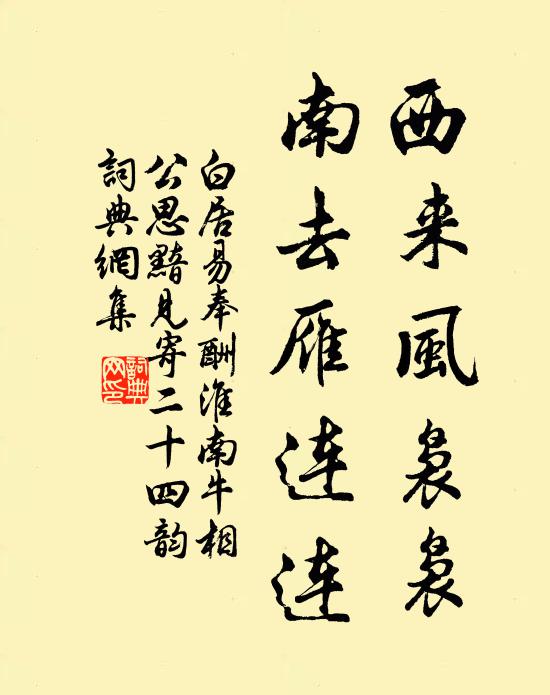 西来風裊裊
南去雁連連
白居易奉酬淮南牛相
公思黯見寄二十四韵
詞典網集
詞典
网印